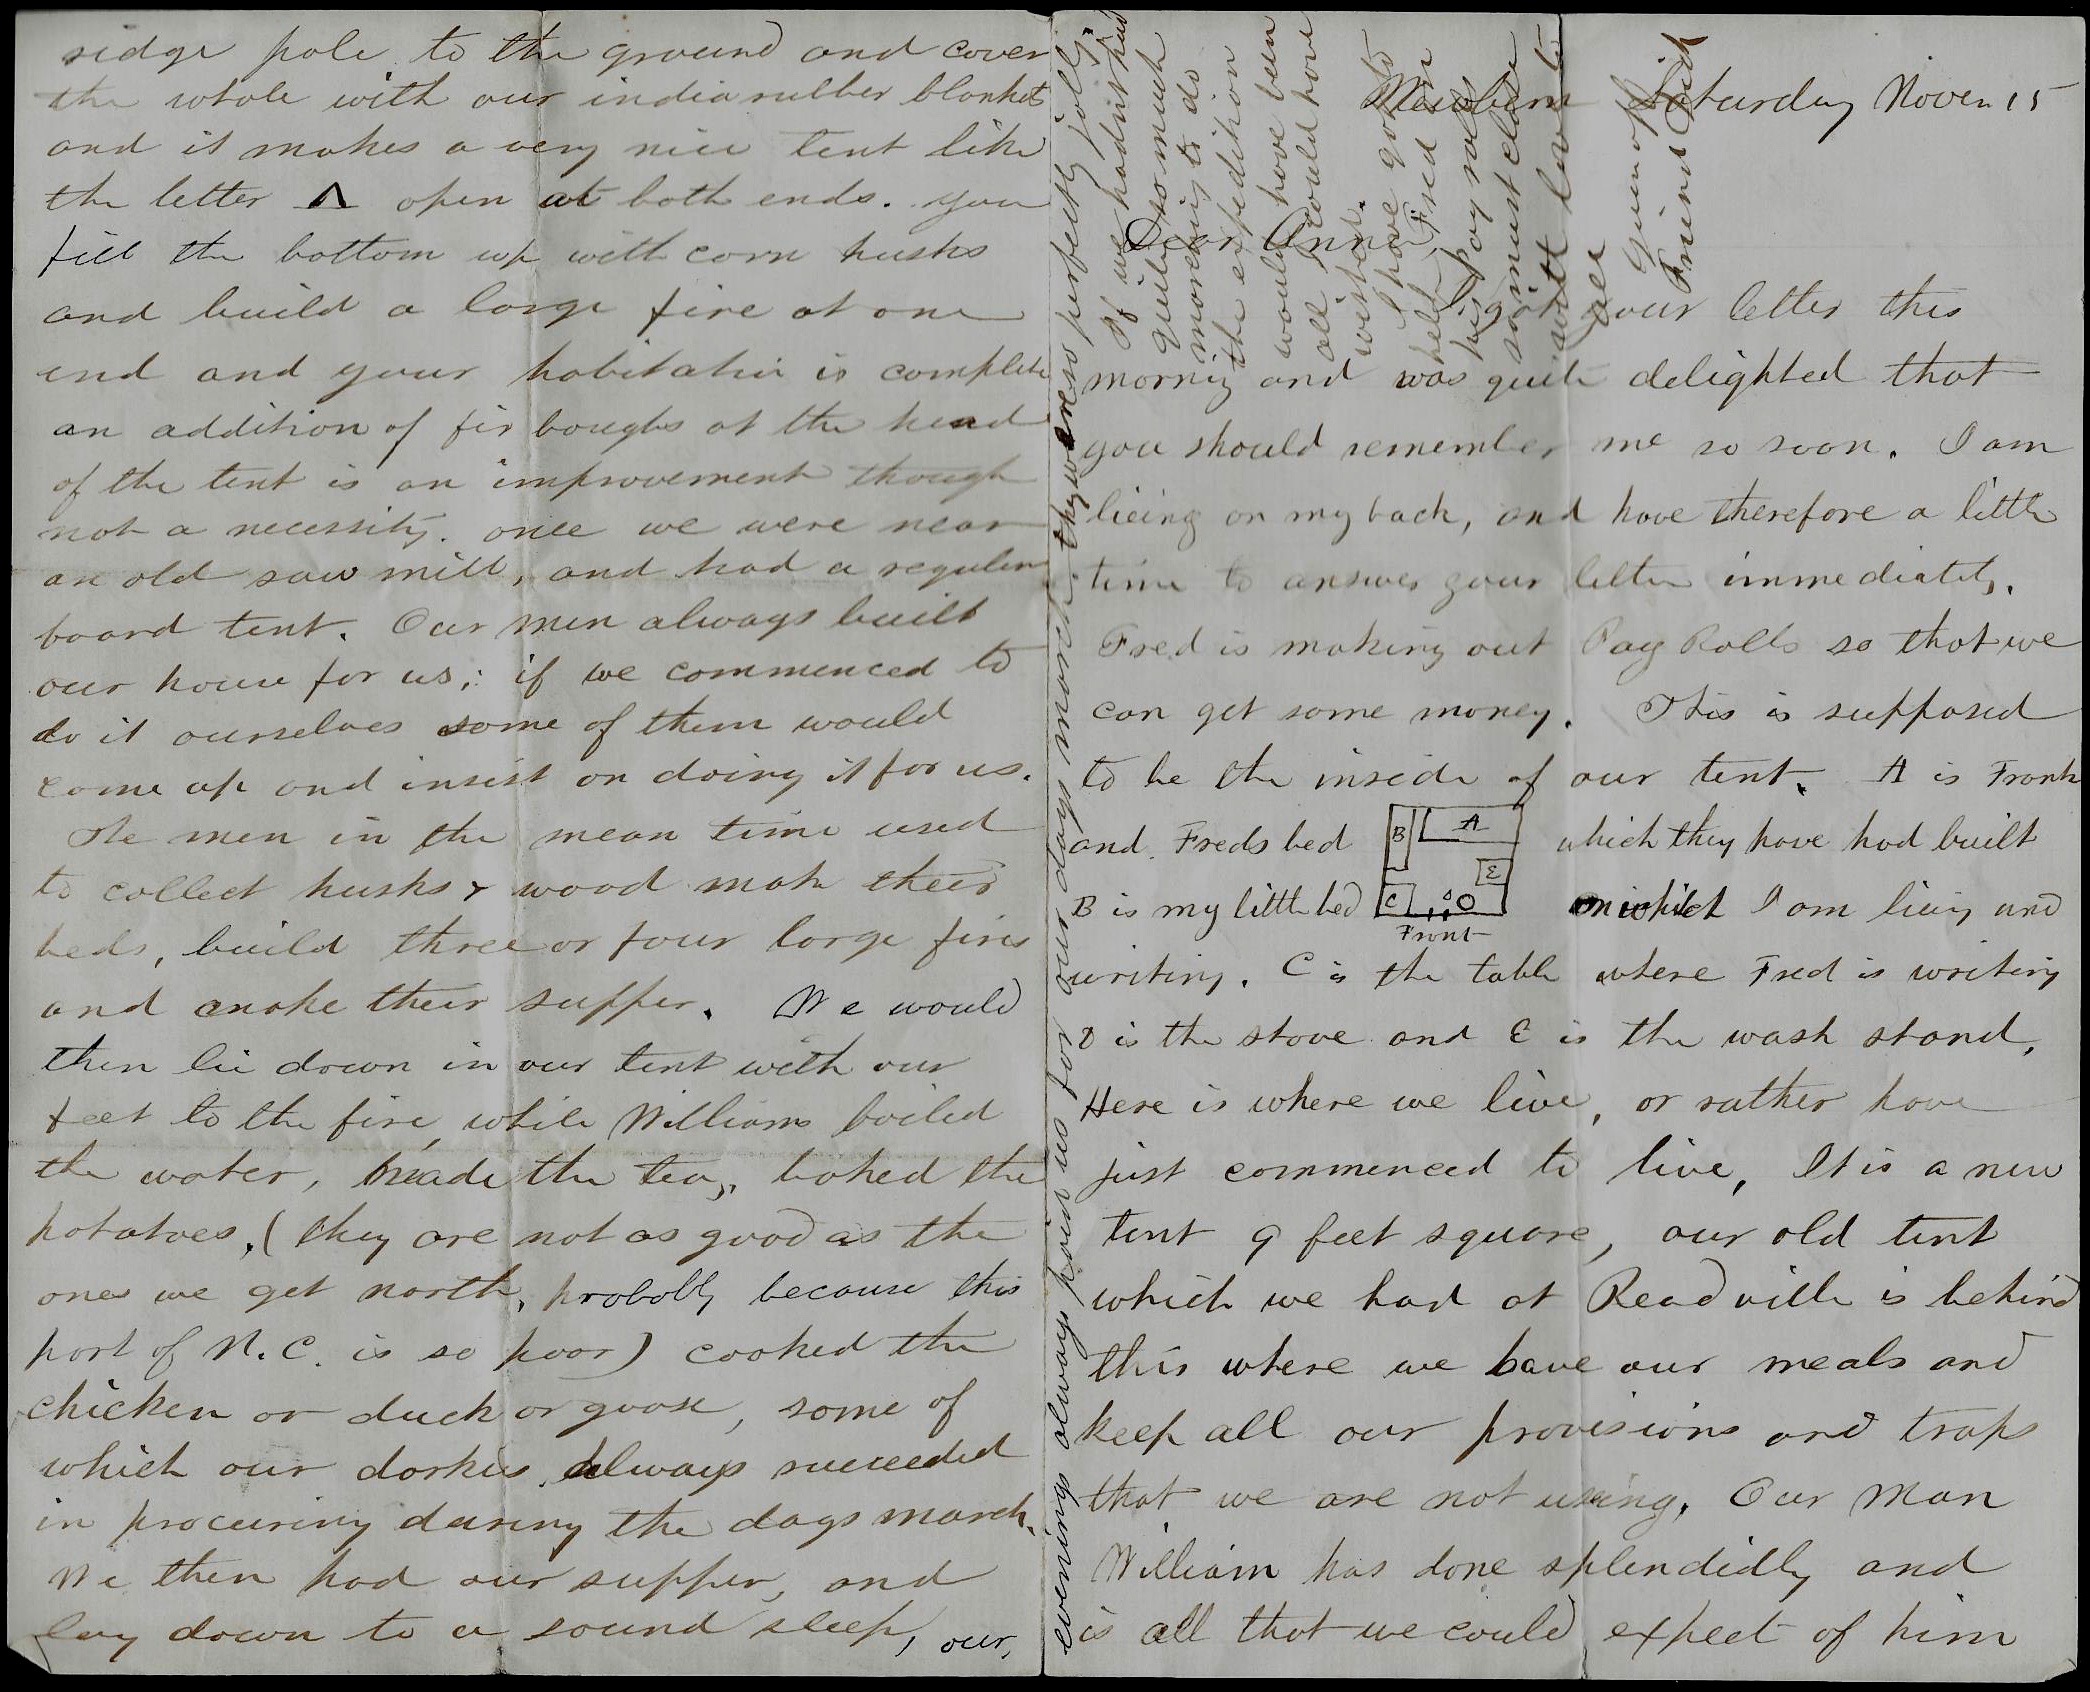 Newbern Saturday Novem 15
Dear Anna
I got your letter this
morning and was quite delighted that
you should remember me so soon. I am
lieing on my back, and have therefore a little
time to answer your letter immediately.
Fred is making out Pay Rolls so that we
can get some money. This is supposed
to be the inside of our tent. A is Frank
and Freds bed which they have had built
B A E C D
Front
B is my little bed on which I am lieing and
writing. C is the table where Fred is writing
D is the stove and E is the wash stand,
Here is where we live, or rather have
just commenced to live, It is a new
tent 9 feet square, our old tent
which we had at Readville is behind
this where we have our meals and
keep all our provisions and traps
that we are not using. Our man
William has done splendidly and
is all that we could expect of him
ridge pole to the ground and cover
the whole with our indiarubber blankets
and it makes a very nice tent like
the letter Λ open at both ends. you
fill the bottom up with corn husks
and build a large fire at one
end and your habitation is complete
an addition of fir boughs at the head
of the tent is an improvement though
not a necessity. once we were near
an old saw mill, and had a regular
board tent. Our men always built
our house for us; if we commenced to
do it ourselves some of them would
come up and insist on doing it for us.
The men in the mean time used
to collect husks & wood make their
beds, build three or four large fires
and make their supper. We would
then lie down in our tent with our
feet to the fire, while William boiled
the water, made the tea, baked the
potatoes, (they are not as good as the
ones we get north, probably because this
part of N.C. is so poor) cooked the
chicken or duck or goose, some of
which our darkies always succeeded
in procuring during the days march.
We then had our supper, and
lay down to a sound sleep, our
evenings always paid us for our days march. they were so perfectly jolly.
If we hadnt had
quite so much
marching to do
the expedition
would have been
all I could have
wished.
I have got to
help Fred on
his pay rolls
so must close
with love to
all
Your aff
Friend